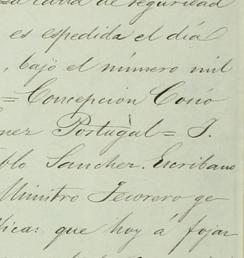 carta de seguridad
es espedida el día
, bajo el número mil
= Concepción Cosío
ner Portugal = J.
blo Sanchez. Escribano
Ministro Tesorero ge
fica: que hoy á fojas